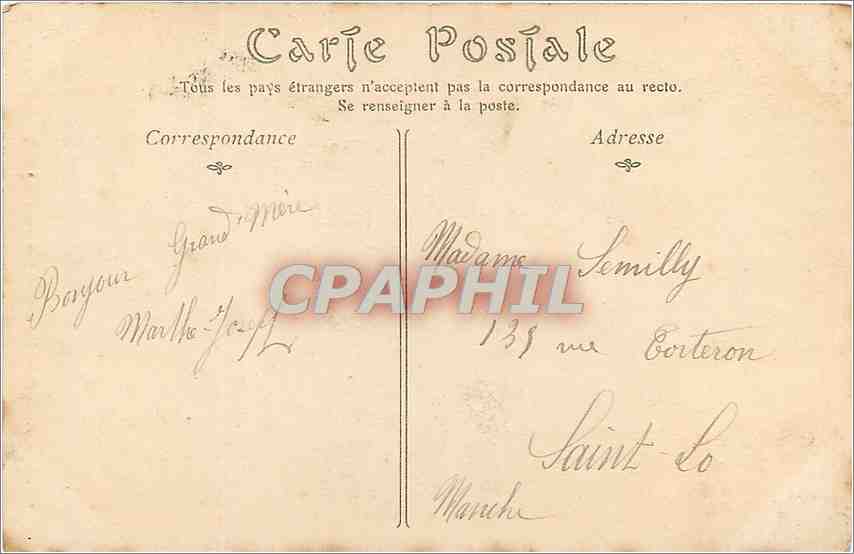 Carte Postale
Tous les pays étrangers n'acceptent pas la correspondance au recto.
Se renseigner à la poste.
Correspondance
Bonjour Grand' Mère
Marthe-Joseph
Adresse
Madame Semilly
139 rue Torteron
Saint-Lo
Manche
CPAPHIL